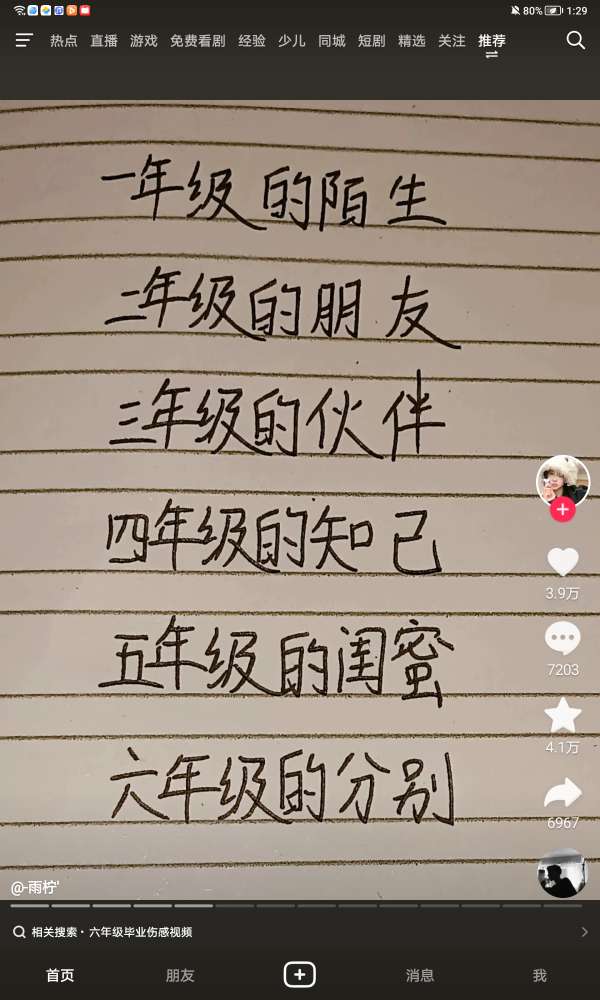 80% 1:29
热点 直播 游戏 免费看剧 经验 少儿 同城 短剧 精选 关注 推荐
一年级的陌生
二年级的朋友
三年级的伙伴
四年级的知己
五年级的闺蜜
六年级的分别
3.9万
7203
4.1万
6967
@-雨柠'
相关搜索·六年级毕业伤感视频
首页 朋友 消息 我